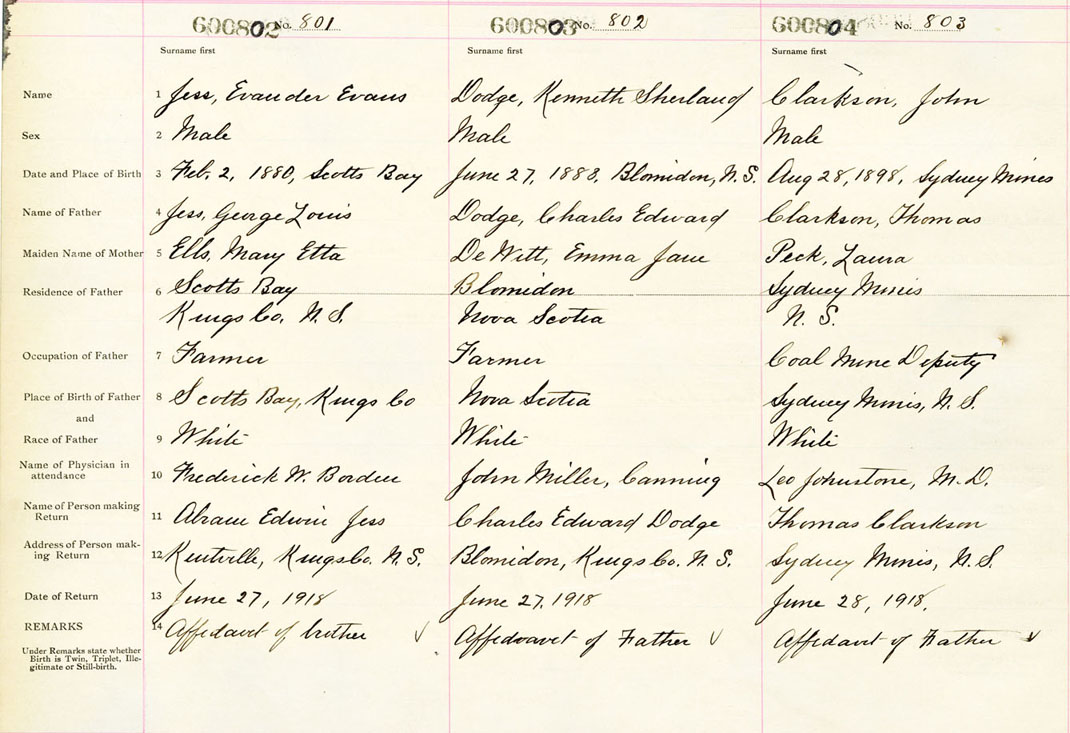 600802 No. 801 600803 No. 802 600804 No. 803
Surname first Surname first Surname first
Name 1 Jess, Evander Evans Dodge, Kenneth Sherland Clarkson, John
Sex 2 Male Male Male
Date and Place of Birth 3 Feb. 2, 1880, Scotts Bay June 27, 1888, Blomidon, N.S. Aug 28, 1898, Sydney Mines
Name of Father 4 Jess, George Louis Dodge, Charles Edward Clarkson, Thomas
Maiden Name of Mother 5 Ells, Mary Etta DeWitt, Emma Jane Peck, Laura
Residence of Father 6 Scotts Bay Blomidon Sydney Mines
Kings Co. N.S. Nova Scotia N.S.
Occupation of Father 7 Farmer Farmer Coal Mine Deputy
Place of Birth of Father 8 Scotts Bay, Kings Co Nova Scotia Sydney Mines, N.S.
and
Race of Father 9 White White White
Name of Physician in
attendance 10 Frederick W. Borden John Miller, Canning Leo Johnstone, M.D.
Name of Person making
Return 11 Abram Edwin Jess Charles Edward Dodge Thomas Clarkson
Address of Person mak-
ing Return 12 Kentville, Kings Co. N.S. Blomidon, Kings Co. N.S. Sydney Mines, N.S.
Date of Return 13 June 27, 1918 June 27, 1918 June 28, 1918.
REMARKS 14 Affidavit of brother Affidavit of Father Affidavit of Father
Under Remarks state whether
Birth is Twin, Triplet, Ille-
gitimate or Still-birth.